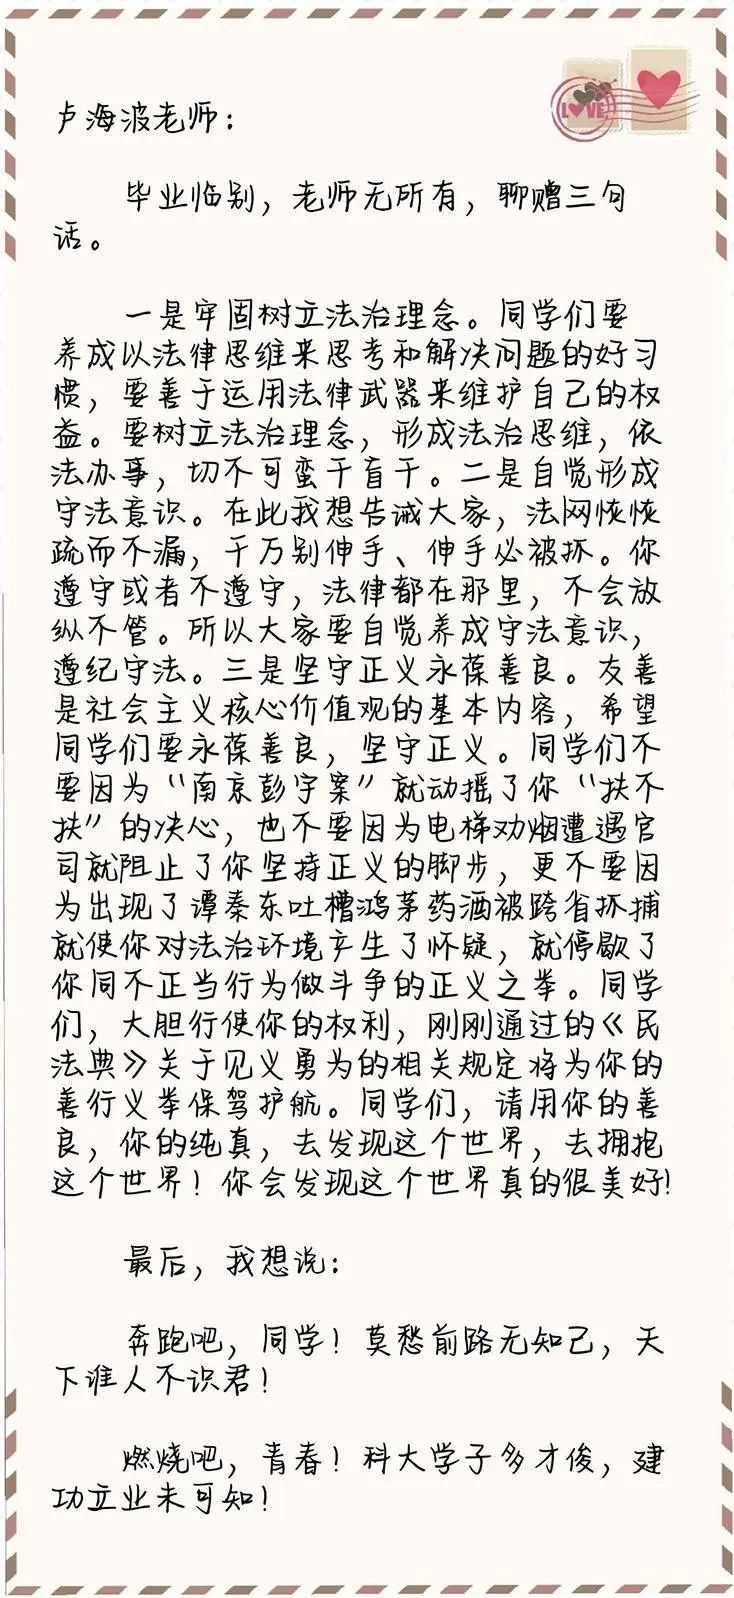 卢海波老师：
LOVE
毕业临别，老师无所有，聊赠三句
话。
一是牢固树立法治理念。同学们要
养成以法律思维来思考和解决问题的好习
惯，要善于运用法律武器来维护自己的权
益。要树立法治理念，形成法治思维，依
法办事，切不可蛮干盲干。二是自觉形成
守法意识。在此我想告诫大家，法网恢恢
疏而不漏，千万别伸手、伸手必被抓。你
遵守或者不遵守，法律都在那里，不会放
纵不管。所以大家要自觉养成守法意识，
遵纪守法。三是坚守正义永葆善良。友善
是社会主义核心价值观的基本内容，希望
同学们要永葆善良，坚守正义。同学们不
要因为“南京彭宇案”就动摇了你“扶不
扶”的决心，也不要因为电梯劝烟遭遇官
司就阻止了你坚持正义的脚步，更不要因
为出现了谭秦东吐槽鸿茅药酒被跨省抓捕
就使你对法治环境产生了怀疑，就停歇了
你同不正当行为做斗争的正义之举。同学
们，大胆行使你的权利，刚刚通过的《民
法典》关于见义勇为的相关规定将为你的
善行义举保驾护航。同学们，请用你的善
良，你的纯真，去发现这个世界，去拥抱
这个世界！你会发现这个世界真的很美好！
最后，我想说：
奔跑吧，同学！莫愁前路无知己，天
下谁人不识君！
燃烧吧，青春！科大学子多才俊，建
功立业未可知！